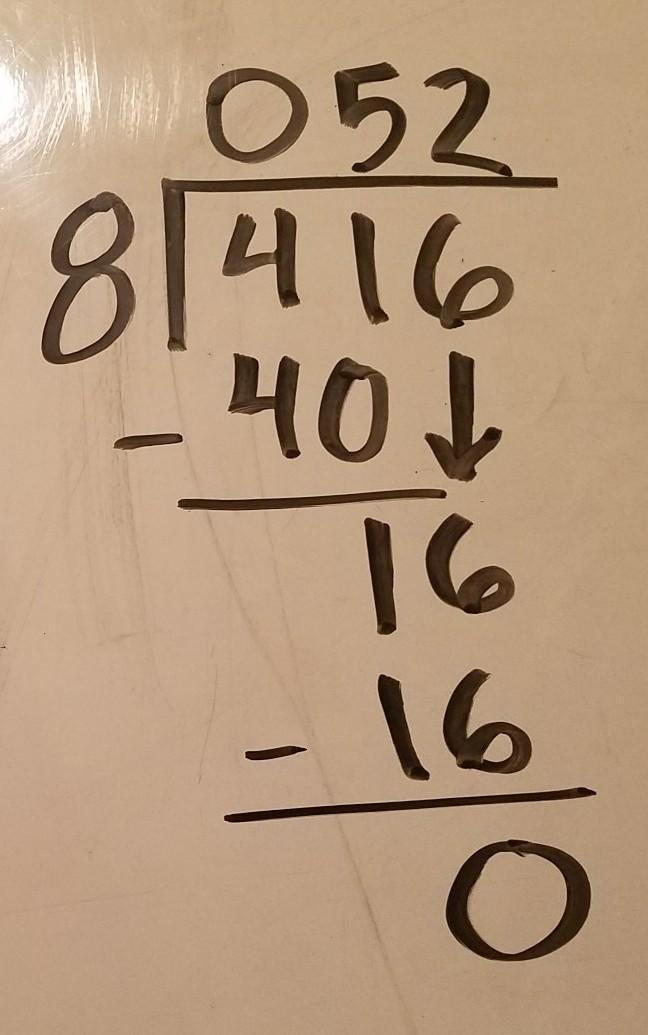 052
8 416
- 40 ↓
16
- 16
0